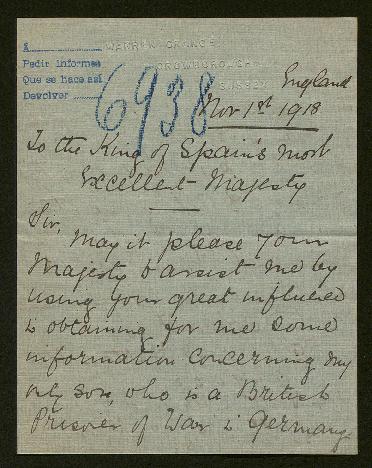 A
Pedir informes
Que se hace así
Devolver
WARREN GRANGE
CROWBOROUGH
SUSSEX
6938
England
Nov 1st 1918
To the King of Spain's most
Excellent Majesty
Sir,
May it please your
Majesty to assist me by
using your great influence
in obtaining for me some
information concerning my
only son, who is a British
Prisoner of War in Germany